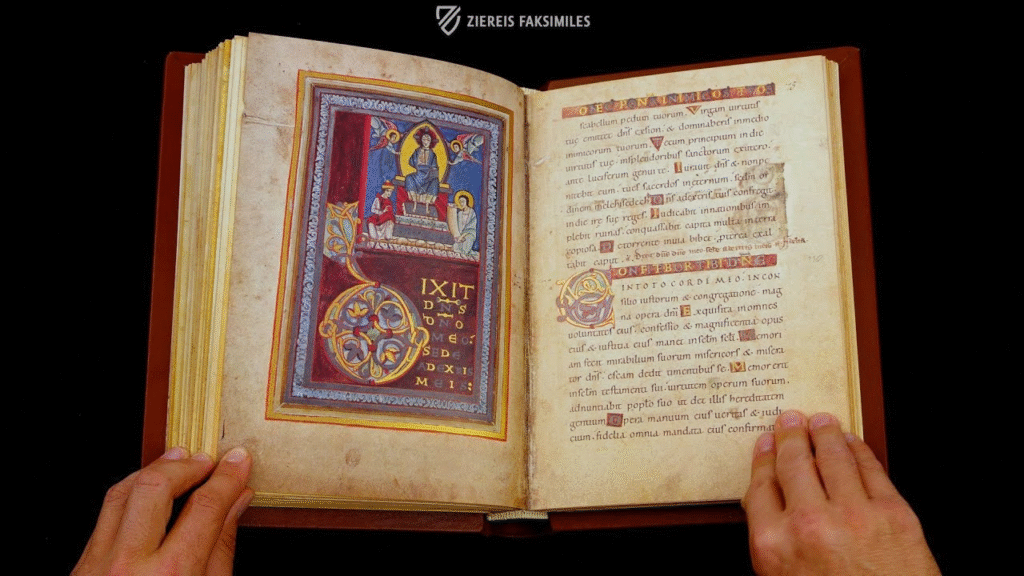 ZIEREIS FAKSIMILES
IXIT
DNS
DNO
MEO
SEDE
ADEXTRIS
MEIS:
scabellum pedum tuorum. Virgam uirtutis
tuę emittet dnſ exſion, & dominaberiſ inmedio
inimicorum tuorum. Tecum principium in die
uirtutiſ tuę, inſplendoribuſ ſanctorum exutero
ante Luciferum genui te. Iurauit dnſ & non
tu eſ ſacerdoſ inęternum
dextriſ tuiſ confregit
in die irę ſuę regeſ. Iudicabit innationibuſ im
plebit ruinaſ, conquaſſabit capita multa interra
De torrente inuia bibet, exal
tabit caput.
CONFITEBOR TIBI DNE
INTOTO CORDE MEO. INCON
ſilio iuſtorum & congregatione. Mag
na opera dnı Exquiſita inomneſ
uoluntateſ eiuſ. Confeſſio & magnificentia opuſ
eiuſ & iuſtitia eiuſ manet inſeclm ſecli. Memori
am fecit mirabilium ſuorum miſericorſ & miſera
tor dnſ. eſcam dedit timentibuſ ſe. Memor erit
inſeclm teſtamenti ſui, uirtutem operum ſuorum.
adnuntiabit poplo ſuo ut det illiſ hereditatem
gentium. Opera manuum eiuſ ueritaſ & iudi
cium. fidelia omnia mandata eiuſ confirmata